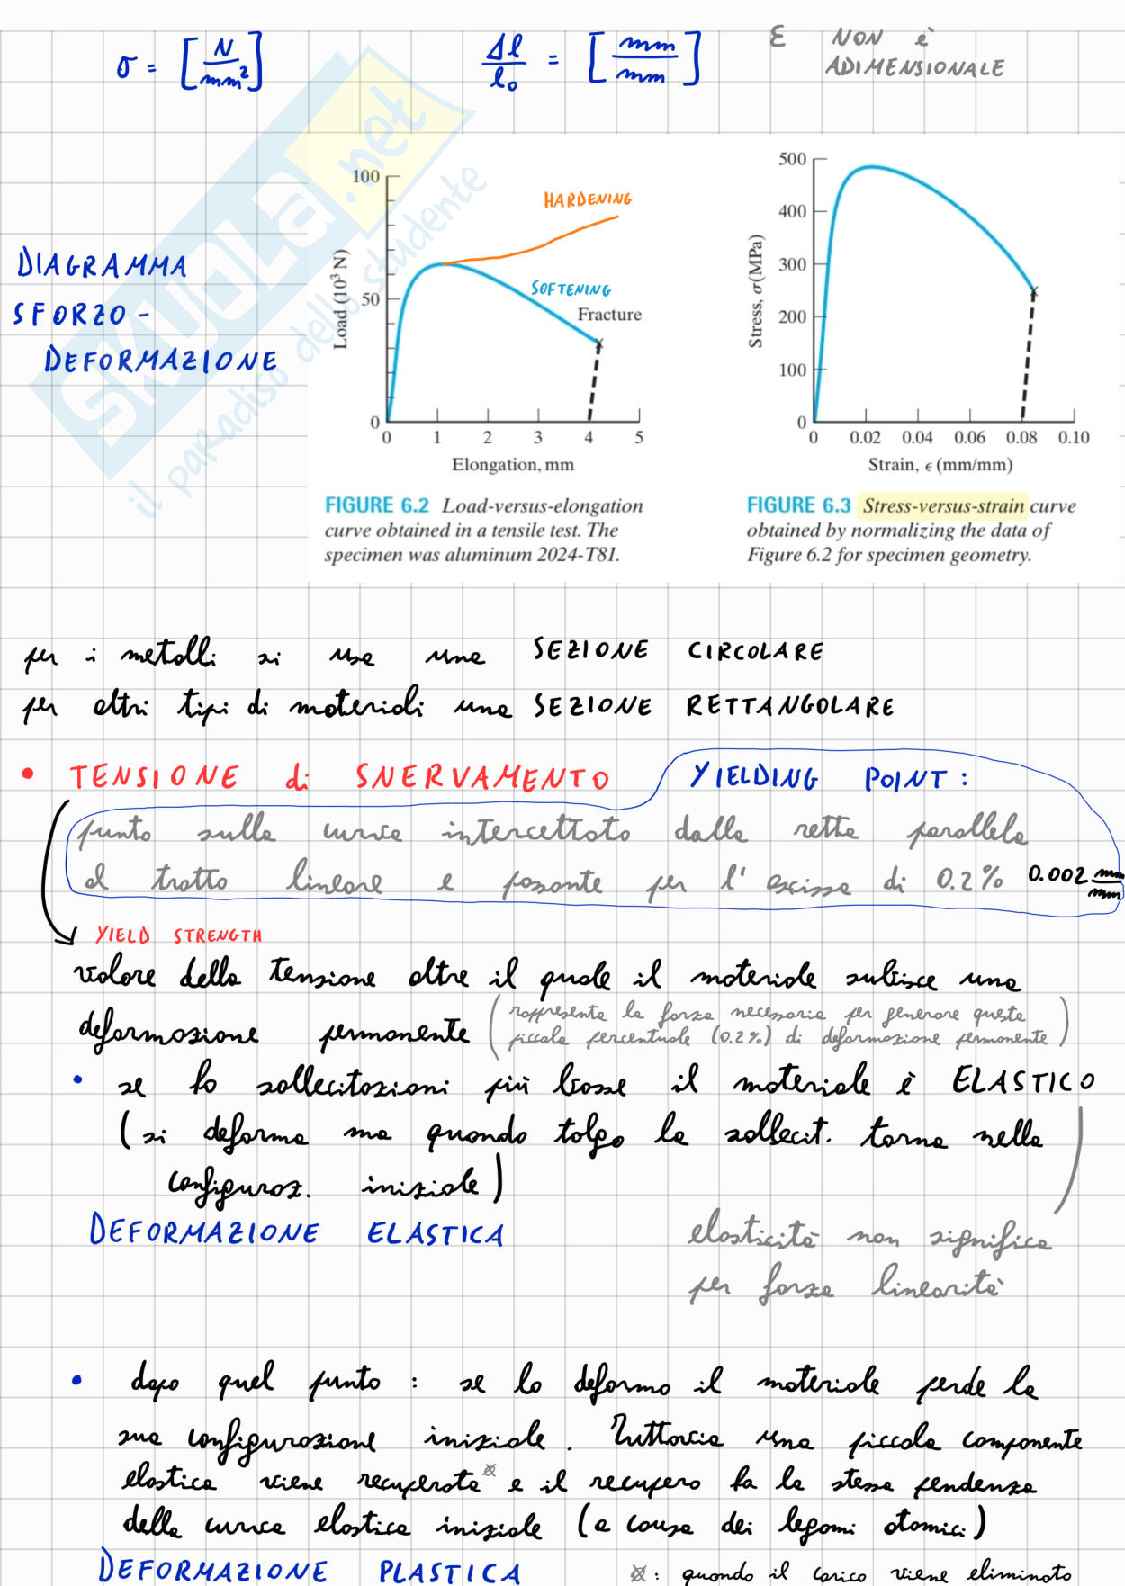 σ = [N/mm²]   Δl/l₀ = [mm/mm]   ε NON è
ADIMENSIONALE
SKUOLA.net
il paradiso dello studente
DIAGRAMMA
SFORZO -
DEFORMAZIONE
100
50
0
0 1 2 3 4 5
Load (10³ N)
Elongation, mm
HARDENING
SOFTENING
Fracture
FIGURE 6.2 Load-versus-elongation
curve obtained in a tensile test. The
specimen was aluminum 2024-T81.
500
400
300
200
100
0
0 0.02 0.04 0.06 0.08 0.10
Stress, σ(MPa)
Strain, ϵ (mm/mm)
FIGURE 6.3 Stress-versus-strain curve
obtained by normalizing the data of
Figure 6.2 for specimen geometry.
per i metalli si usa una SEZIONE CIRCOLARE
per altri tipi di materiali una SEZIONE RETTANGOLARE
• TENSIONE di SNERVAMENTO YIELDING POINT:
punto sulla curva intercettato dalla retta parallela
al tratto lineare e passante per l'ascissa di 0.2% 0.002 mm/mm
YIELD STRENGTH
valore della tensione oltre il quale il materiale subisce una
deformazione permanente (rappresenta la forza necessaria per generare questa
piccola percentuale (0.2%) di deformazione permanente)
• se ho sollecitazioni più basse il materiale è ELASTICO
(si deforma ma quando tolgo la sollecit. torna nella
configuraz. iniziale)
DEFORMAZIONE ELASTICA
elasticità non significa
per forza linearità
• dopo quel punto : se lo deformo il materiale perde la
sua configurazione iniziale. Tuttavia una piccola componente
elastica viene recuperata e il recupero ha la stessa pendenza
della curva elastica iniziale (a causa dei legami atomici)
DEFORMAZIONE PLASTICA
: quando il carico viene eliminato